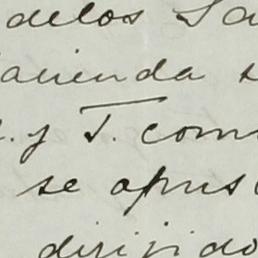 delos Sa
acienda s
. y T. com
se opus
dirijido